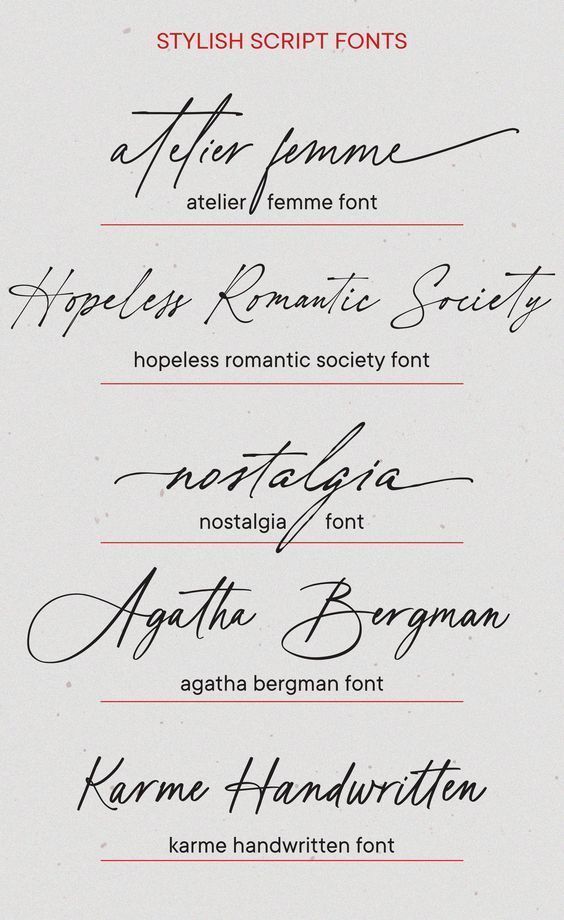 STYLISH SCRIPT FONTS
atelier femme
atelier femme font
Hopeless Romantic Society
hopeless romantic society font
nostalgia
nostalgia font
Agatha Bergman
agatha bergman font
Karme Handwritten
karme handwritten font